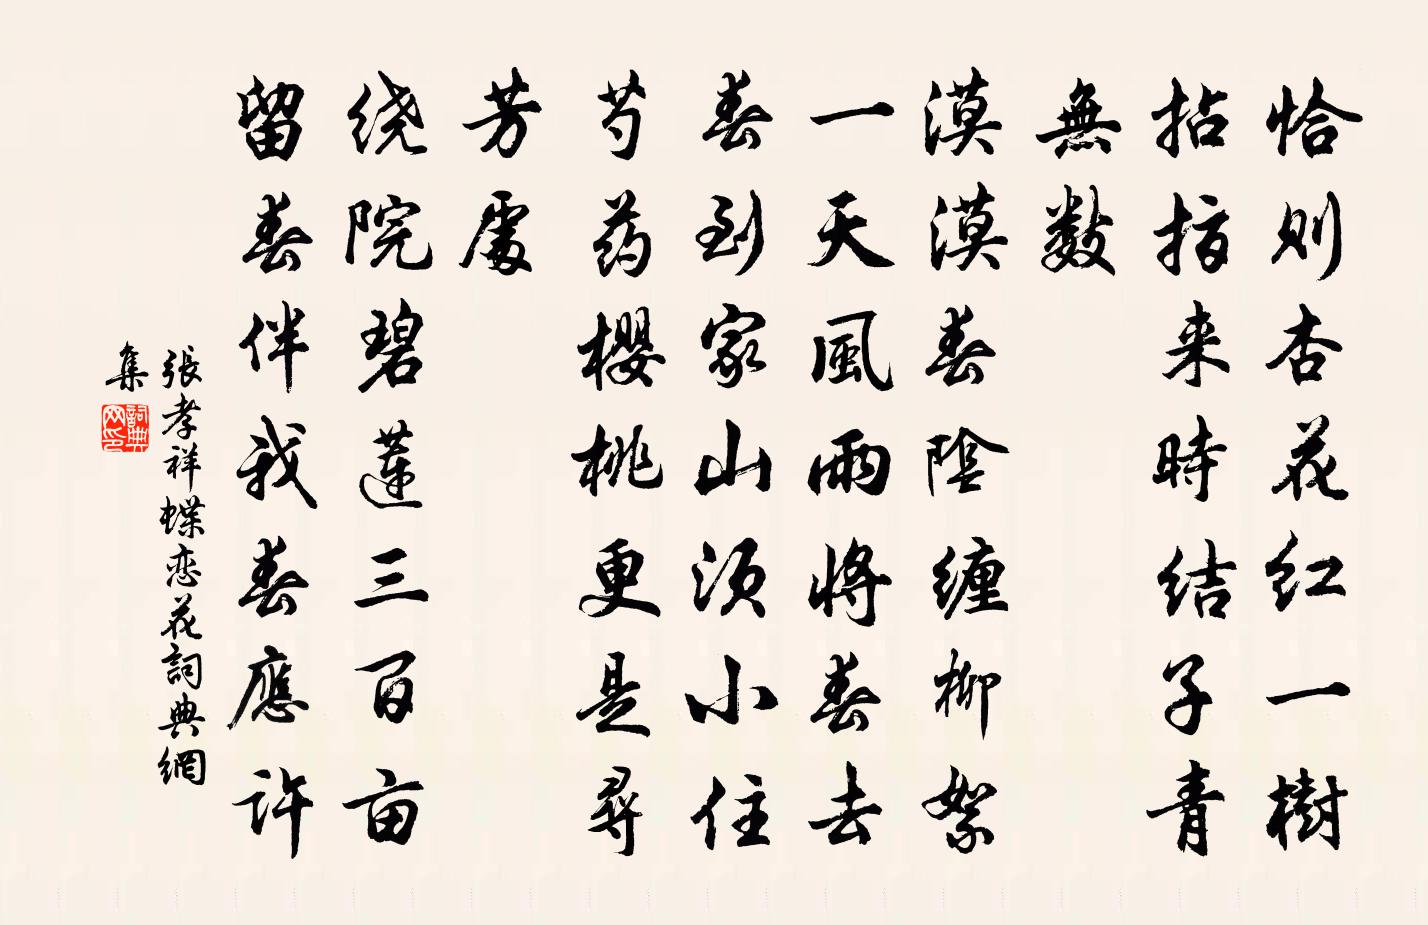 恰则杏花红一樹
拈指来時结子青
無数
漠漠春陰缠柳絮
一天風雨將春去
春到家山须小住
芍药櫻桃更是尋
芳處
绕院碧莲三百亩
留春伴我春應许
張孝祥蝶恋花詞典網
集
詞典
网印